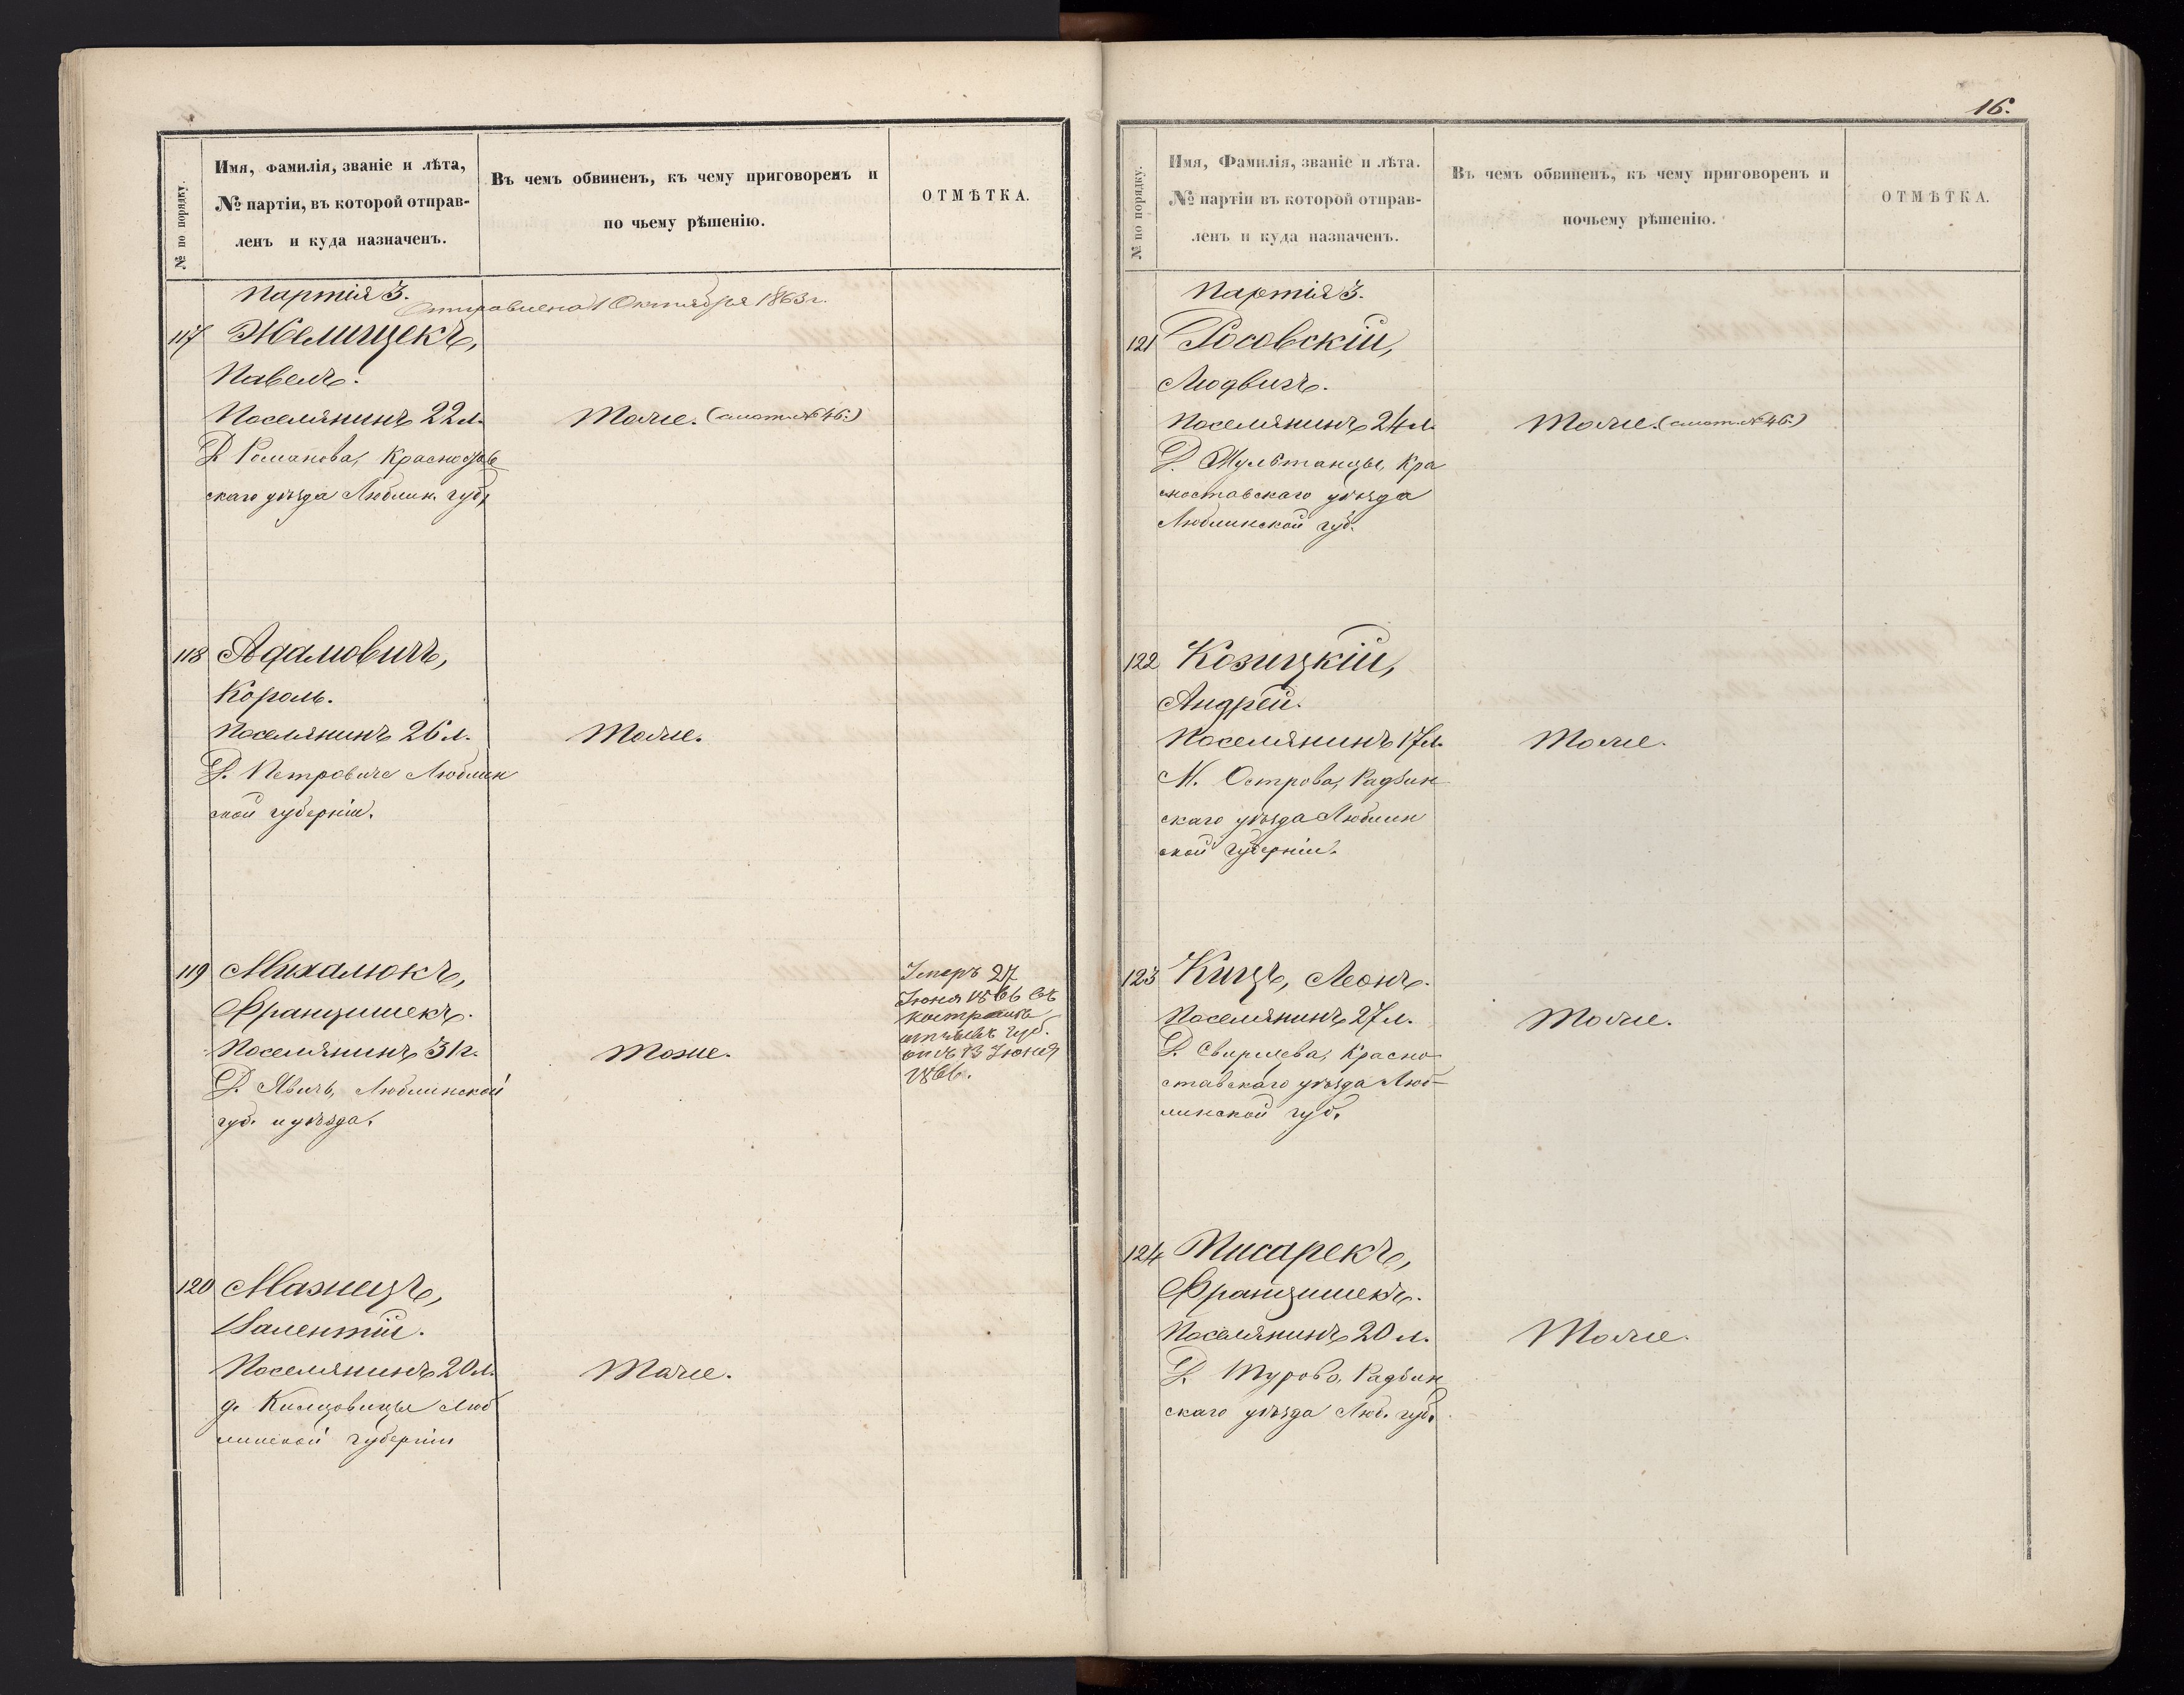 № по порядку.
Имя, фамилія, званіе и лѣта,
№ партіи, въ которой отправ-
ленъ и куда назначенъ.
Въ чемъ обвиненъ, къ чему приговоренъ и
по чьему рѣшенію.
ОТМѢТКА.
Партія 3.
Отправлена 1 Октября 1863 г.
117 Желищекъ,
Павелъ.
Поселянинъ 22 л.
Тоже. (смот. № 46.)
Д. Романова, Красностав
скаго уѣзда Люблин. губ.
118 Адамовичъ,
Король.
Поселянинъ 26 л.
Тоже.
Д. Петровиче Люблин
ской губерніи.
119 Михалюкъ,
Францишекъ.
Поселянинъ 31 г.
Тоже.
Д. Явичъ, Люблинской
губ. и уѣзда.
Умеръ 27
Іюня 1866 въ
губ.
13 Іюня
1866.
120 Мазнецъ,
Валентій.
Поселянинъ 20 л.
Тоже.
д. Люб
линской губерніи
16.
№ по порядку.
Имя, Фамилія, званіе и лѣта.
№ партіи въ которой отправ-
ленъ и куда назначенъ.
Въ чемъ обвиненъ, къ чему приговоренъ и
почьему рѣшенію.
ОТМѢТКА.
Партія 3.
121 Росовскій,
Людвигъ.
Поселянинъ 24 л.
Тоже. (смот. № 46.)
Д. Мультанцы, Кра
сноставскаго уѣзда
Люблинской губ.
122 Козицкій,
Андрей.
Поселянинъ 17 л.
Тоже.
М. Острова, Радзин
скаго уѣзда Люблин
ской губерніи.
123 Кицъ, Леонъ.
Поселянинъ 27 л.
Тоже.
Д. Свирщева, Красно
ставскаго уѣзда Люб-
линской губ.
124 Писарекъ,
Францишекъ.
Поселянинъ 20 л.
Тоже.
Д. Турово, Радзин
скаго уѣзда Люб. губ.